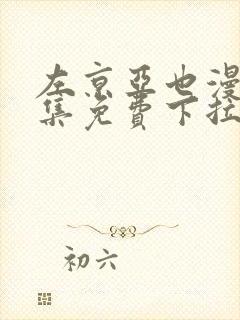 左京亚也漫
集免费下拉
初六